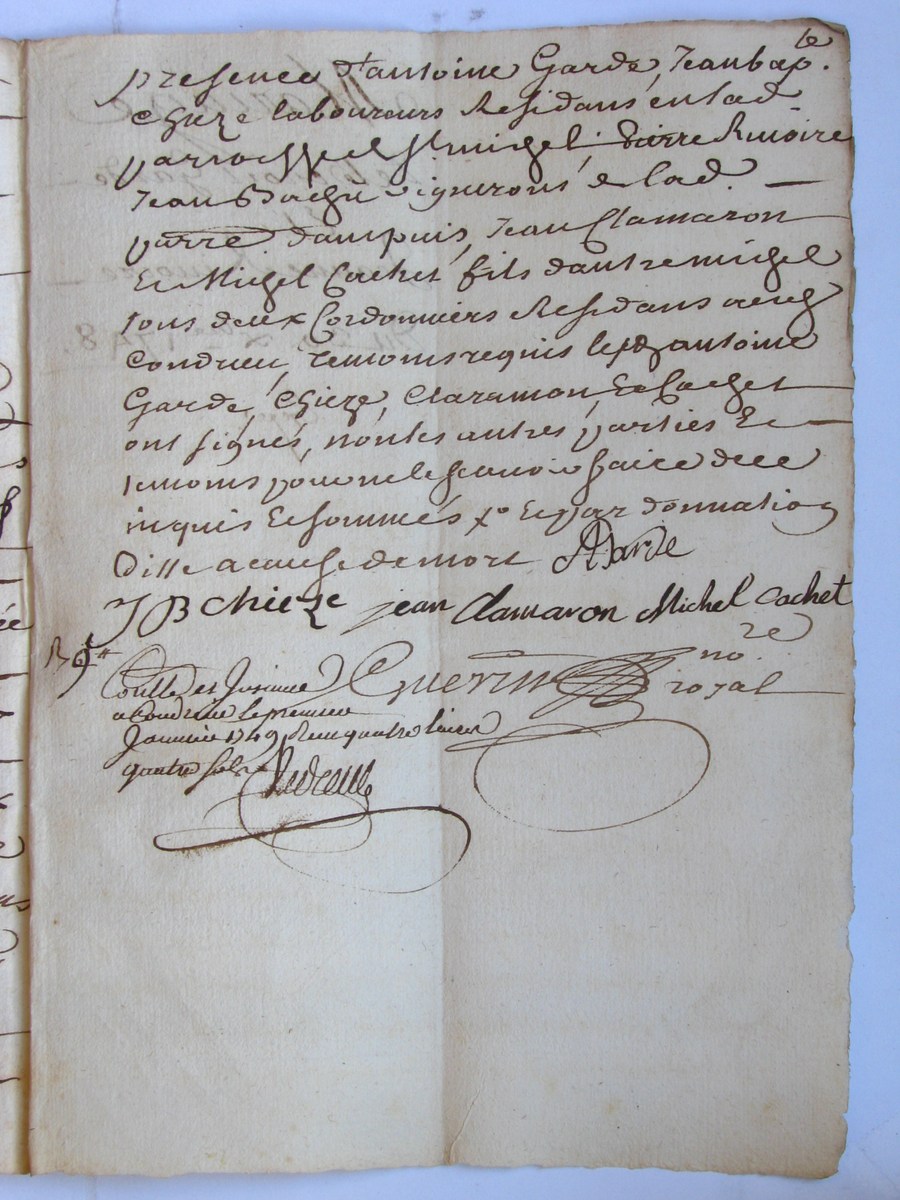 presence d'antoine Garde, Jean bap.te
chieze laboureurs Residans en lad.
parroisse de St michel, pierre Rivoire
Jean Bachu vignerons de lad.
parre dampuis, Jean Clamaron
Et Michel Cachet fils d'autre michel
tous deux Cordonniers Residans aud
condrieu, temoins requis lesd antoine
Garde, chieze, Claramon, Et Cachet
ont signés, non les autres parties Et
temoins pour ne le scavoir faire de ce
inquis Et sommés Et par donnation
ditte a cause de mort AGarde
JB chieze jean Clamaron Michel Cachet
Guerin no.re
royal
Conllé et Insinué
a Condrieu le premier
Janvier 1749 Reçu quatre livres
quatre sols